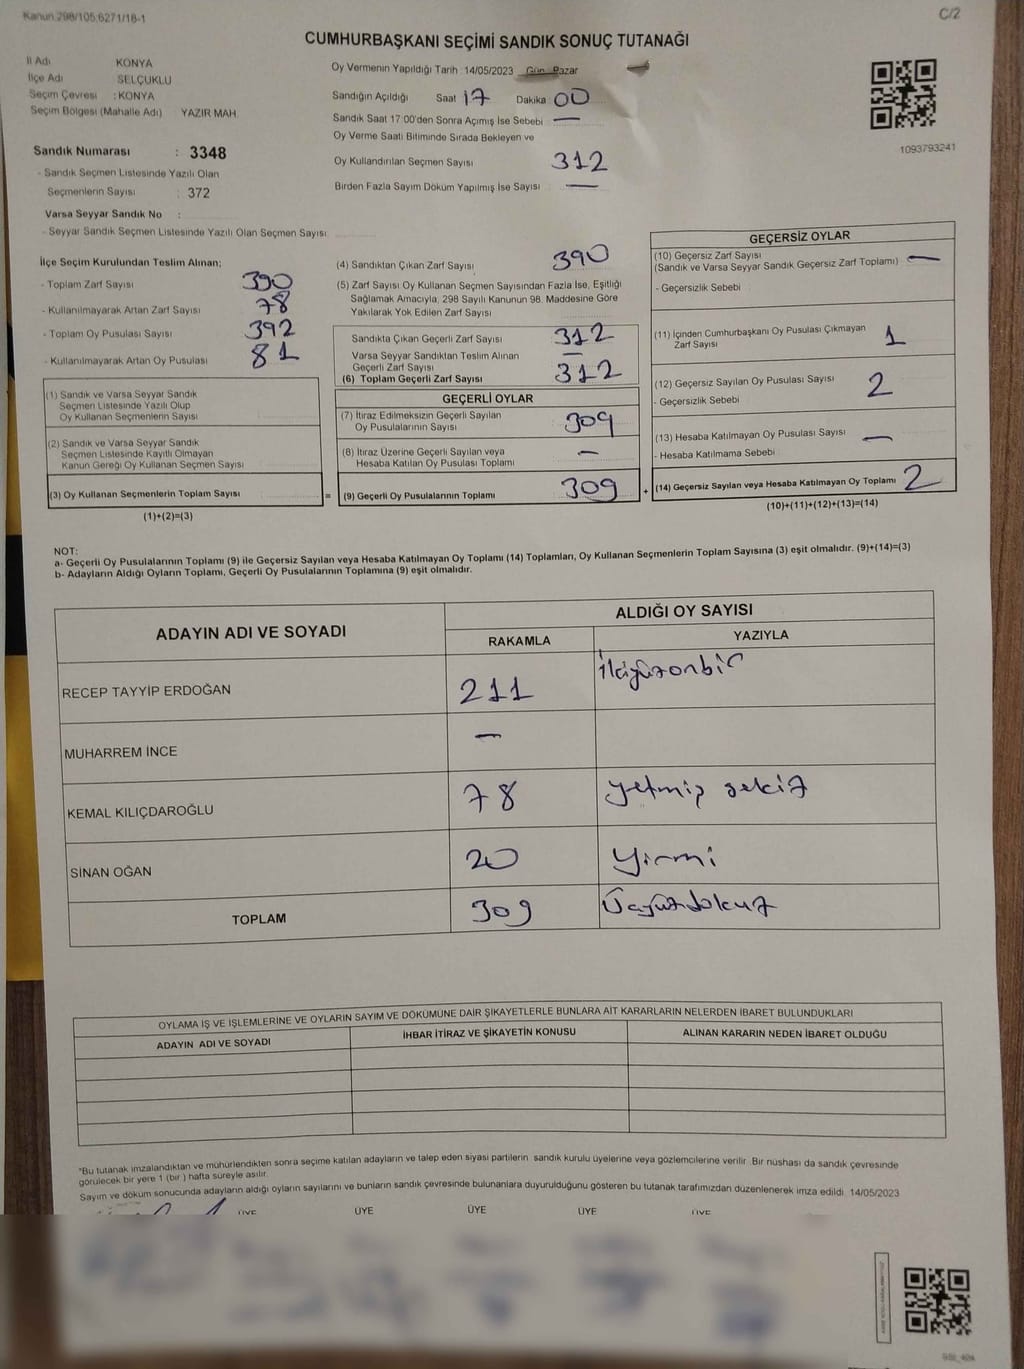 Kanun 298/105,6271/18-1
C/2
CUMHURBAŞKANI SEÇİMİ SANDIK SONUÇ TUTANAĞI
İl Adı KONYA
İlçe Adı SELÇUKLU
Seçim Çevresi : KONYA
Seçim Bölgesi (Mahalle Adı) YAZIR MAH.
Sandık Numarası : 3348
- Sandık Seçmen Listesinde Yazılı Olan
Seçmenlerin Sayısı : 372
Varsa Seyyar Sandık No :
- Seyyar Sandık Seçmen Listesinde Yazılı Olan Seçmen Sayısı
Oy Vermenin Yapıldığı Tarih 14/05/2023 Gün Pazar
Sandığın Açıldığı Saat 17 Dakika 00
Sandık Saat 17:00'den Sonra Açımış İse Sebebi —
Oy Verme Saati Bitiminde Sırada Bekleyen ve
Oy Kullandırılan Seçmen Sayısı 312
Birden Fazla Sayım Döküm Yapılmış İse Sayısı —
1093793241
İlçe Seçim Kurulundan Teslim Alınan;
- Toplam Zarf Sayısı 390
- Kullanılmayarak Artan Zarf Sayısı 78
- Toplam Oy Pusulası Sayısı 392
- Kullanılmayarak Artan Oy Pusulası 81
(1) Sandık ve Varsa Seyyar Sandık
Seçmen Listesinde Yazılı Olup
Oy Kullanan Seçmenlerin Sayısı
(2) Sandık ve Varsa Seyyar Sandık
Seçmen Listesinde Kayıtlı Olmayan
Kanun Gereği Oy Kullanan Seçmen Sayısı
(3) Oy Kullanan Seçmenlerin Toplam Sayısı
=
(1)+(2)=(3)
(4) Sandıktan Çıkan Zarf Sayısı 390
(5) Zarf Sayısı Oy Kullanan Seçmen Sayısından Fazla İse, Eşitliği
Sağlamak Amacıyla, 298 Sayılı Kanunun 98. Maddesine Göre
Yakılarak Yok Edilen Zarf Sayısı
Sandıkta Çıkan Geçerli Zarf Sayısı 312
Varsa Seyyar Sandıktan Teslim Alınan
Geçerli Zarf Sayısı —
(6) Toplam Geçerli Zarf Sayısı 312
GEÇERLİ OYLAR
(7) İtiraz Edilmeksizin Geçerli Sayılan
Oy Pusulalarının Sayısı 309
(8) İtiraz Üzerine Geçerli Sayılan veya
Hesaba Katılan Oy Pusulası Toplamı —
(9) Geçerli Oy Pusulalarının Toplamı 309
+
GEÇERSİZ OYLAR
(10) Geçersiz Zarf Sayısı
(Sandık ve Varsa Seyyar Sandık Geçersiz Zarf Toplamı) —
- Geçersizlik Sebebi
(11) İçinden Cumhurbaşkanı Oy Pusulası Çıkmayan
Zarf Sayısı 1
(12) Geçersiz Sayılan Oy Pusulası Sayısı 2
- Geçersizlik Sebebi
(13) Hesaba Katılmayan Oy Pusulası Sayısı —
- Hesaba Katılmama Sebebi
(14) Geçersiz Sayılan veya Hesaba Katılmayan Oy Toplamı 2
(10)+(11)+(12)+(13)=(14)
NOT:
a- Geçerli Oy Pusulalarının Toplamı (9) ile Geçersiz Sayılan veya Hesaba Katılmayan Oy Toplamı (14) Toplamları, Oy Kullanan Seçmenlerin Toplam Sayısına (3) eşit olmalıdır. (9)+(14)=(3)
b- Adayların Aldığı Oyların Toplamı, Geçerli Oy Pusulalarının Toplamına (9) eşit olmalıdır.
ADAYIN ADI VE SOYADI
ALDIĞI OY SAYISI
RAKAMLA YAZIYLA
RECEP TAYYİP ERDOĞAN 211 İkiyüzonbir
MUHARREM İNCE —
KEMAL KILIÇDAROĞLU 78 yetmiş sekiz
SİNAN OĞAN 20 yirmi
TOPLAM 309 Üçyüzdokuz
OYLAMA İŞ VE İŞLEMLERİNE VE OYLARIN SAYIM VE DÖKÜMÜNE DAİR ŞİKAYETLERLE BUNLARA AİT KARARLARIN NELERDEN İBARET BULUNDUKLARI
ADAYIN ADI VE SOYADI İHBAR İTİRAZ VE ŞİKAYETİN KONUSU ALINAN KARARIN NEDEN İBARET OLDUĞU
*Bu tutanak imzalandıktan ve mühürlendikten sonra seçime katılan adayların ve talep eden siyasi partilerin sandık kurulu üyelerine veya gözlemcilerine verilir. Bir nüshası da sandık çevresinde
görülecek bir yere 1 (bir) hafta süreyle asılır.
Sayım ve döküm sonucunda adayların aldığı oyların sayılarını ve bunların sandık çevresinde bulunanlara duyurulduğunu gösteren bu tutanak tarafımızdan düzenlenerek imza edildi. 14/05/2023
ÜYE ÜYE ÜYE ÜYE ÜYE